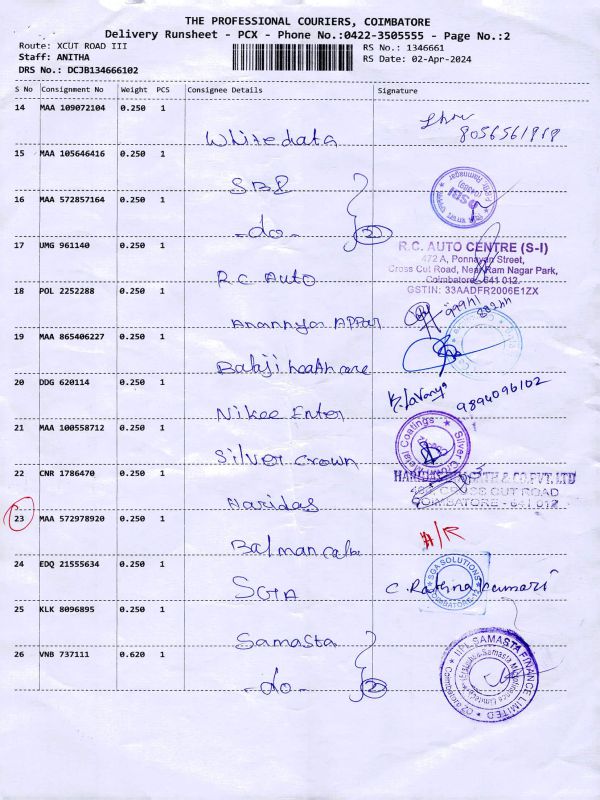 THE PROFESSIONAL COURIERS, COIMBATORE
Delivery Runsheet - PCX - Phone No.:0422-3505555 - Page No.:2
Route: XCUT ROAD III
Staff: ANITHA
DRS No.: DCJB134666102
RS No.: 1346661
RS Date: 02-Apr-2024
S No Consignment No Weight PCS Consignee Details Signature
14 MAA 109072104 0.250 1
White data
8056561919
15 MAA 105646416 0.250 1
SBI
16 MAA 572857164 0.250 1
-do- 2
SBI
Ramnagar
17 UMG 961140 0.250 1
R.C Auto
R.C. AUTO CENTRE (S-I)
472 A, Ponnayan Street,
Cross Cut Road, Near Ram Nagar Park,
Coimbatore - 641 012.
GSTIN: 33AADFR2006E1ZX
18 POL 2252288 0.250 1
19 MAA 865406227 0.250 1
Balaji healthcare
20 DDG 620114 0.250 1
Nikee Enter
K. Lavanya
9894096102
21 MAA 100558712 0.250 1
Silver Crown
Silver Crown Metal Coatings
22 CNR 1786470 0.250 1
Haridas
& CO.PVT.LTD
CROSS CUT ROAD
COIMBATORE - 641 012
23 MAA 572978920 0.250 1
24 EDQ 21555634 0.250 1
SGA
SGA SOLUTIONS
COIMBATORE
C. Rathna kumari
25 KLK 8096895 0.250 1
Samasta
26 VNB 737111 0.620 1
-do- 2
IIFL SAMASTA FINANCE LIMITED